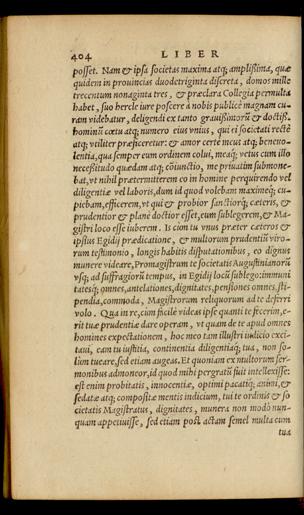 404 LIBER
posset. Nam & ipsa societas maxima atq; amplißima, quæ
quidem in prouincias duodetriginta discreta, domos mille
trecentum nonaginta tres, & præclara Collegia permulta
habet, suo hercle iure poscere à nobis publicè magnam cu-
ram videbatur, deligendi ex tanto grauißimorũ & doctiß.
hominũ cœtu atq; numero eius vnius, qui ei societati rectè
atq; vtiliter præficeretur: & amor certè meus atq; beneuo-
lentia, qua semper eum ordinem colui, meaq; vetus cum illo
necessitudo quædam atq; cõiunctio, me priuatim submone-
bat, vt nihil prætermitterem eo in homine perquirendo vel
diligentiæ vel laboris, dum id quod volebam maximeq; cu-
piebam, efficerem, vt qui & probior sanctiorq; cæteris, &
prudentior & planè doctior esset, eum sublegerem, & Ma-
gistri loco esse iuberem. Is cùm tu vnus præter cæteros &
ipsius Egidij prædicatione, & multorum prudentiũ viro-
rum testimonio, longis habitis disputationibus, eo dignus
munere videare, Promagistrum te societatis Augustinianorũ
vsq; ad suffragiorũ tempus, in Egidij locũ sublego: immuni
tatesq; omnes, antelationes, dignitates, pensiones omnes, sti-
pendia, commoda, Magistrorum reliquorum ad te deferri
volo. Qua in re, cùm facilè videas ipse quanti te fecerim, e-
rit tuæ prudentiæ dare operam, vt quam de te apud omnes
homines expectationem, hoc meo tam illustri iudicio exci-
taui, eam tu iustitia, continentia diligentiaq; tua, non so-
lùm tueare, sed etiam augeas. Et quoniam ex multorum ser-
monibus admoneor, id quod mihi pergratũ fuit intellexisse:
est enim probitatis, innocentiæ, optimi pacatiq; animi, &
sedatæ atq; compositæ mentis indicium, tui te ordinis & so
cietatis Magistratus, dignitates, munera non modò nun-
quam appetiuisse, sed etiam post actam semel multa cum
tua